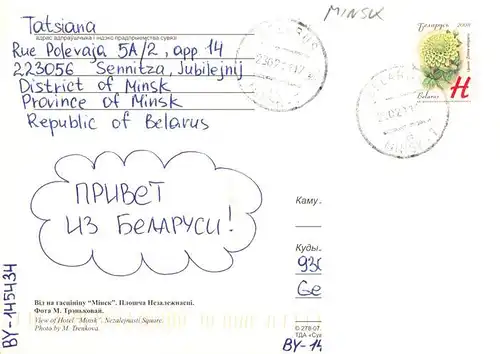 Tatsiana
MINSK
Беларусь 2008
адрас адпраўшчыка і індэкс прадпрыемства сувязі
Rue Polevaja 5A/2, app 14
223056 Sennitza, Jubilejnij
District of Minsk
Province of Minsk
Republic of Belarus
Belarus H
ПРИВЕТ
ИЗ БЕЛАРУСИ!
Каму
Куды
930
Ge
Від на гасцініцу "Мінск". Плошча Незалежнасці.
Фота М. Трэнькавай.
View of Hotel "Minsk". Nezalejnasti Square.
Photo by M. Trenkova.
© 278-07.
BY-14
BY-145434